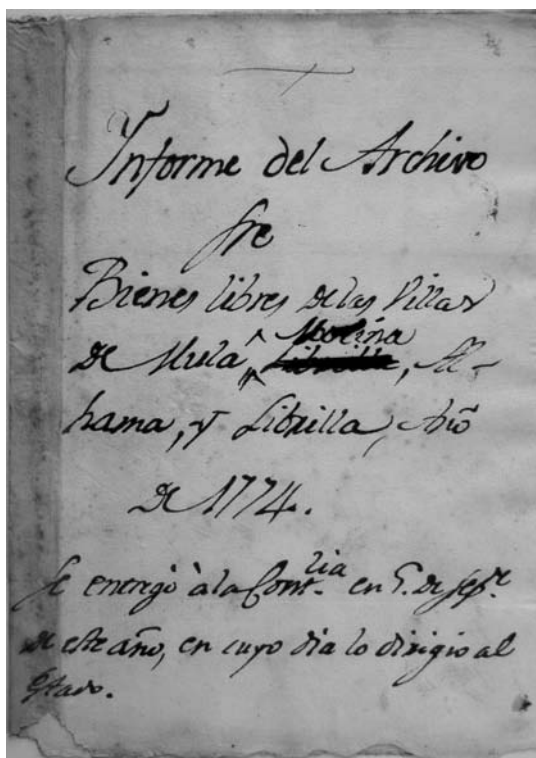 Informe del Archivo
sre
Bienes libres de las Villas
de Mula, Molina, Al-
hama, y Librilla, Año
de 1774.
se entregó à la Cont.lia en 5. de sep.re
de este año, en cuyo dia lo dirigio al
Estado.